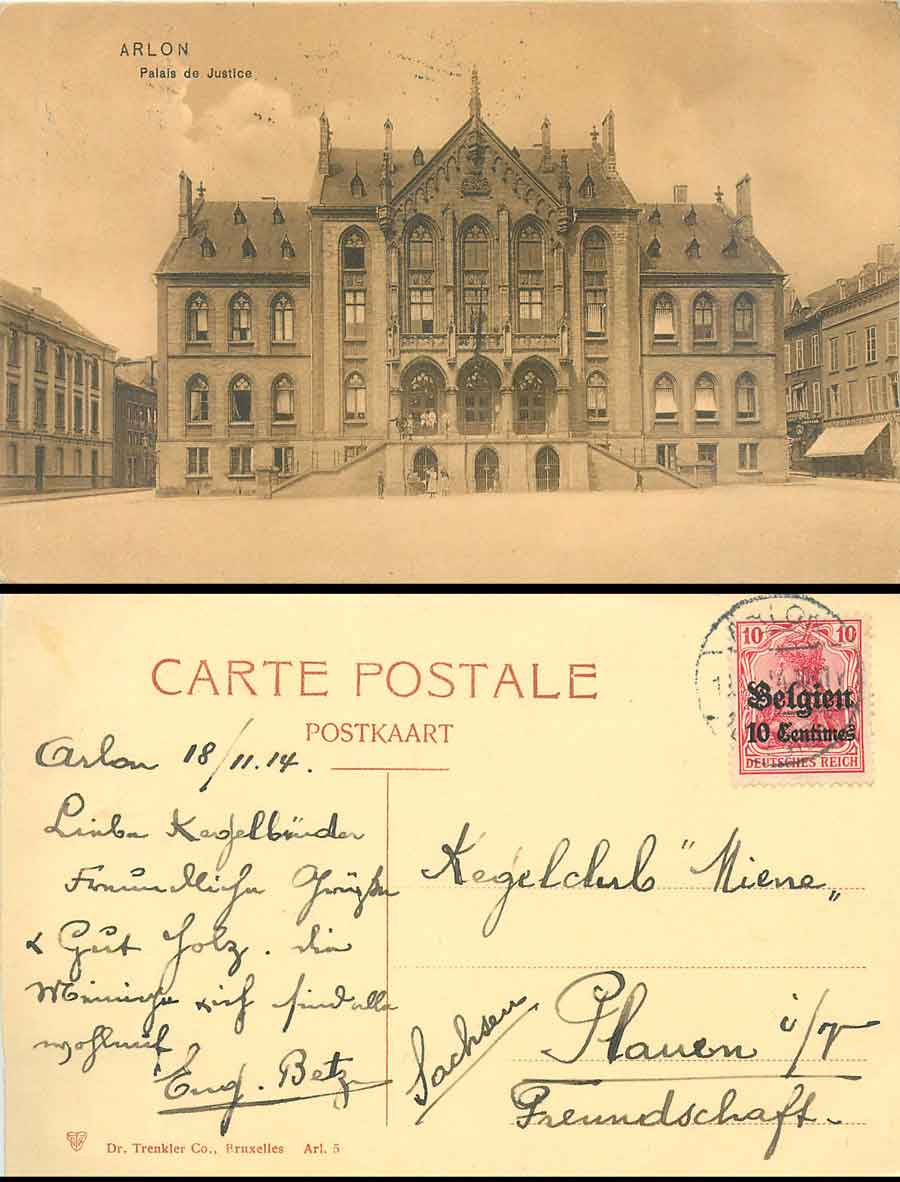 ARLON
Palais de Justice
CARTE POSTALE
POSTKAART
ARLON
10 10
Belgien
10 Centimes
DEUTSCHES REICH
Arlon 18/11.14.
Liebe Kegelbrüder
Freundliche Grüße
& Gut Holz. die
Meinige & ich sind alle
wohlauf
Eug. Betz
Kegelclub "Miene„
Sachsen
Plauen i/V
Freundschaft.
Dr. Trenkler Co., Bruxelles Arl. 5